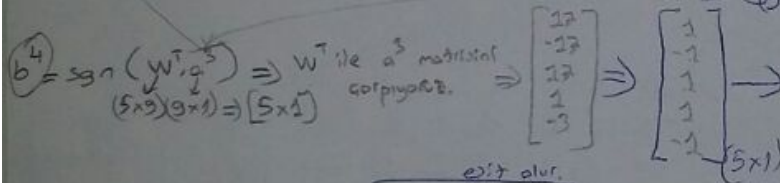 b⁴ = sgn (Wᵀ.a³) ⇒ Wᵀ ile a³ matrisini çarpıyoruz. ⇒ [17 -17 17 1 -3] ⇒ [1 -1 1 1 -1] (5x1) →
(5x9)(9x1) ⇒ [5x1]
eşit olur.